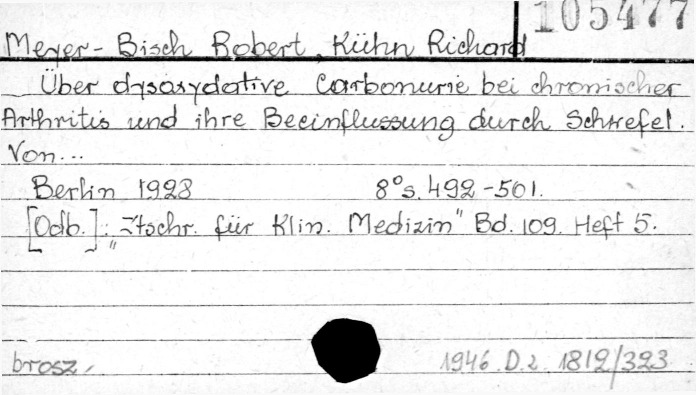 105477
Meyer-Bisch Robert, Kühn Richard
Über dysoxydative Carbonurie bei chronischer
Arthritis und ihre Beeinflussung durch Schwefel.
Von...
Berlin 1928 8° s. 492-501.
[Odb.]: „Ztschr. für Klin. Medizin" Bd. 109. Heft 5.
brosz. 1946.D.2. 1812/323